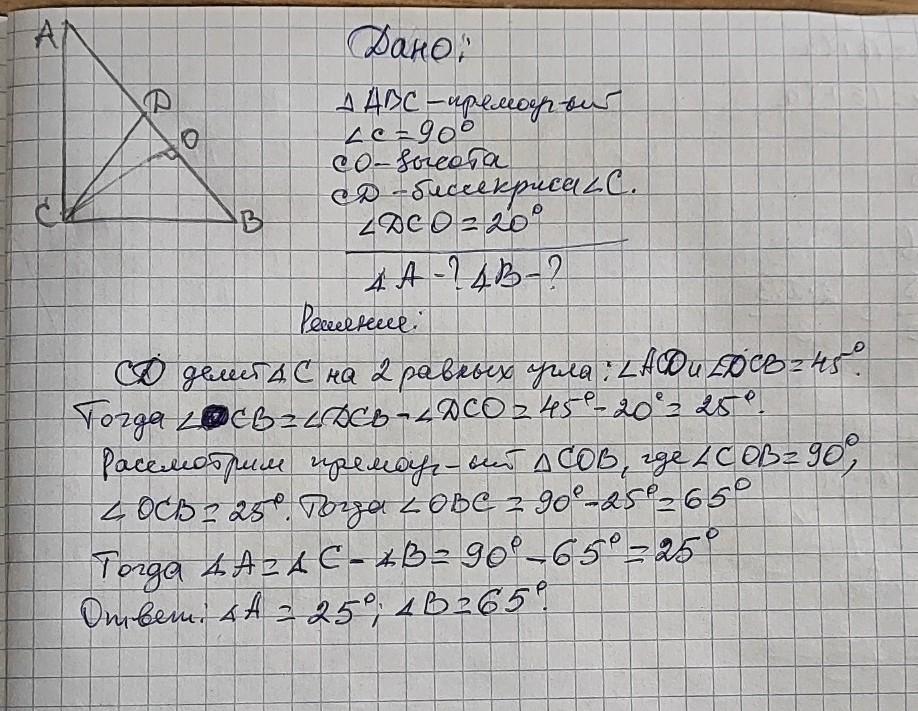 A
D
O
C
B
Дано:
△ABC – прямоуг-ый
∠C = 90°
CO – высота
CD – биссекриса ∠C.
∠DCO = 20°
∠A - ? ∠B - ?
Решение:
CD делит ∠C на 2 равных угла: ∠ACD и ∠DCB = 45°.
Тогда ∠OCB = ∠DCB - ∠DCO = 45° - 20° = 25°.
Рассмотрим прямоуг-ый △COB, где ∠COB = 90°,
∠OCB = 25°. Тогда ∠OBC = 90° - 25° = 65°
Тогда ∠A = ∠C - ∠B = 90° - 65° = 25°
Ответ: ∠A = 25°; ∠B = 65°.